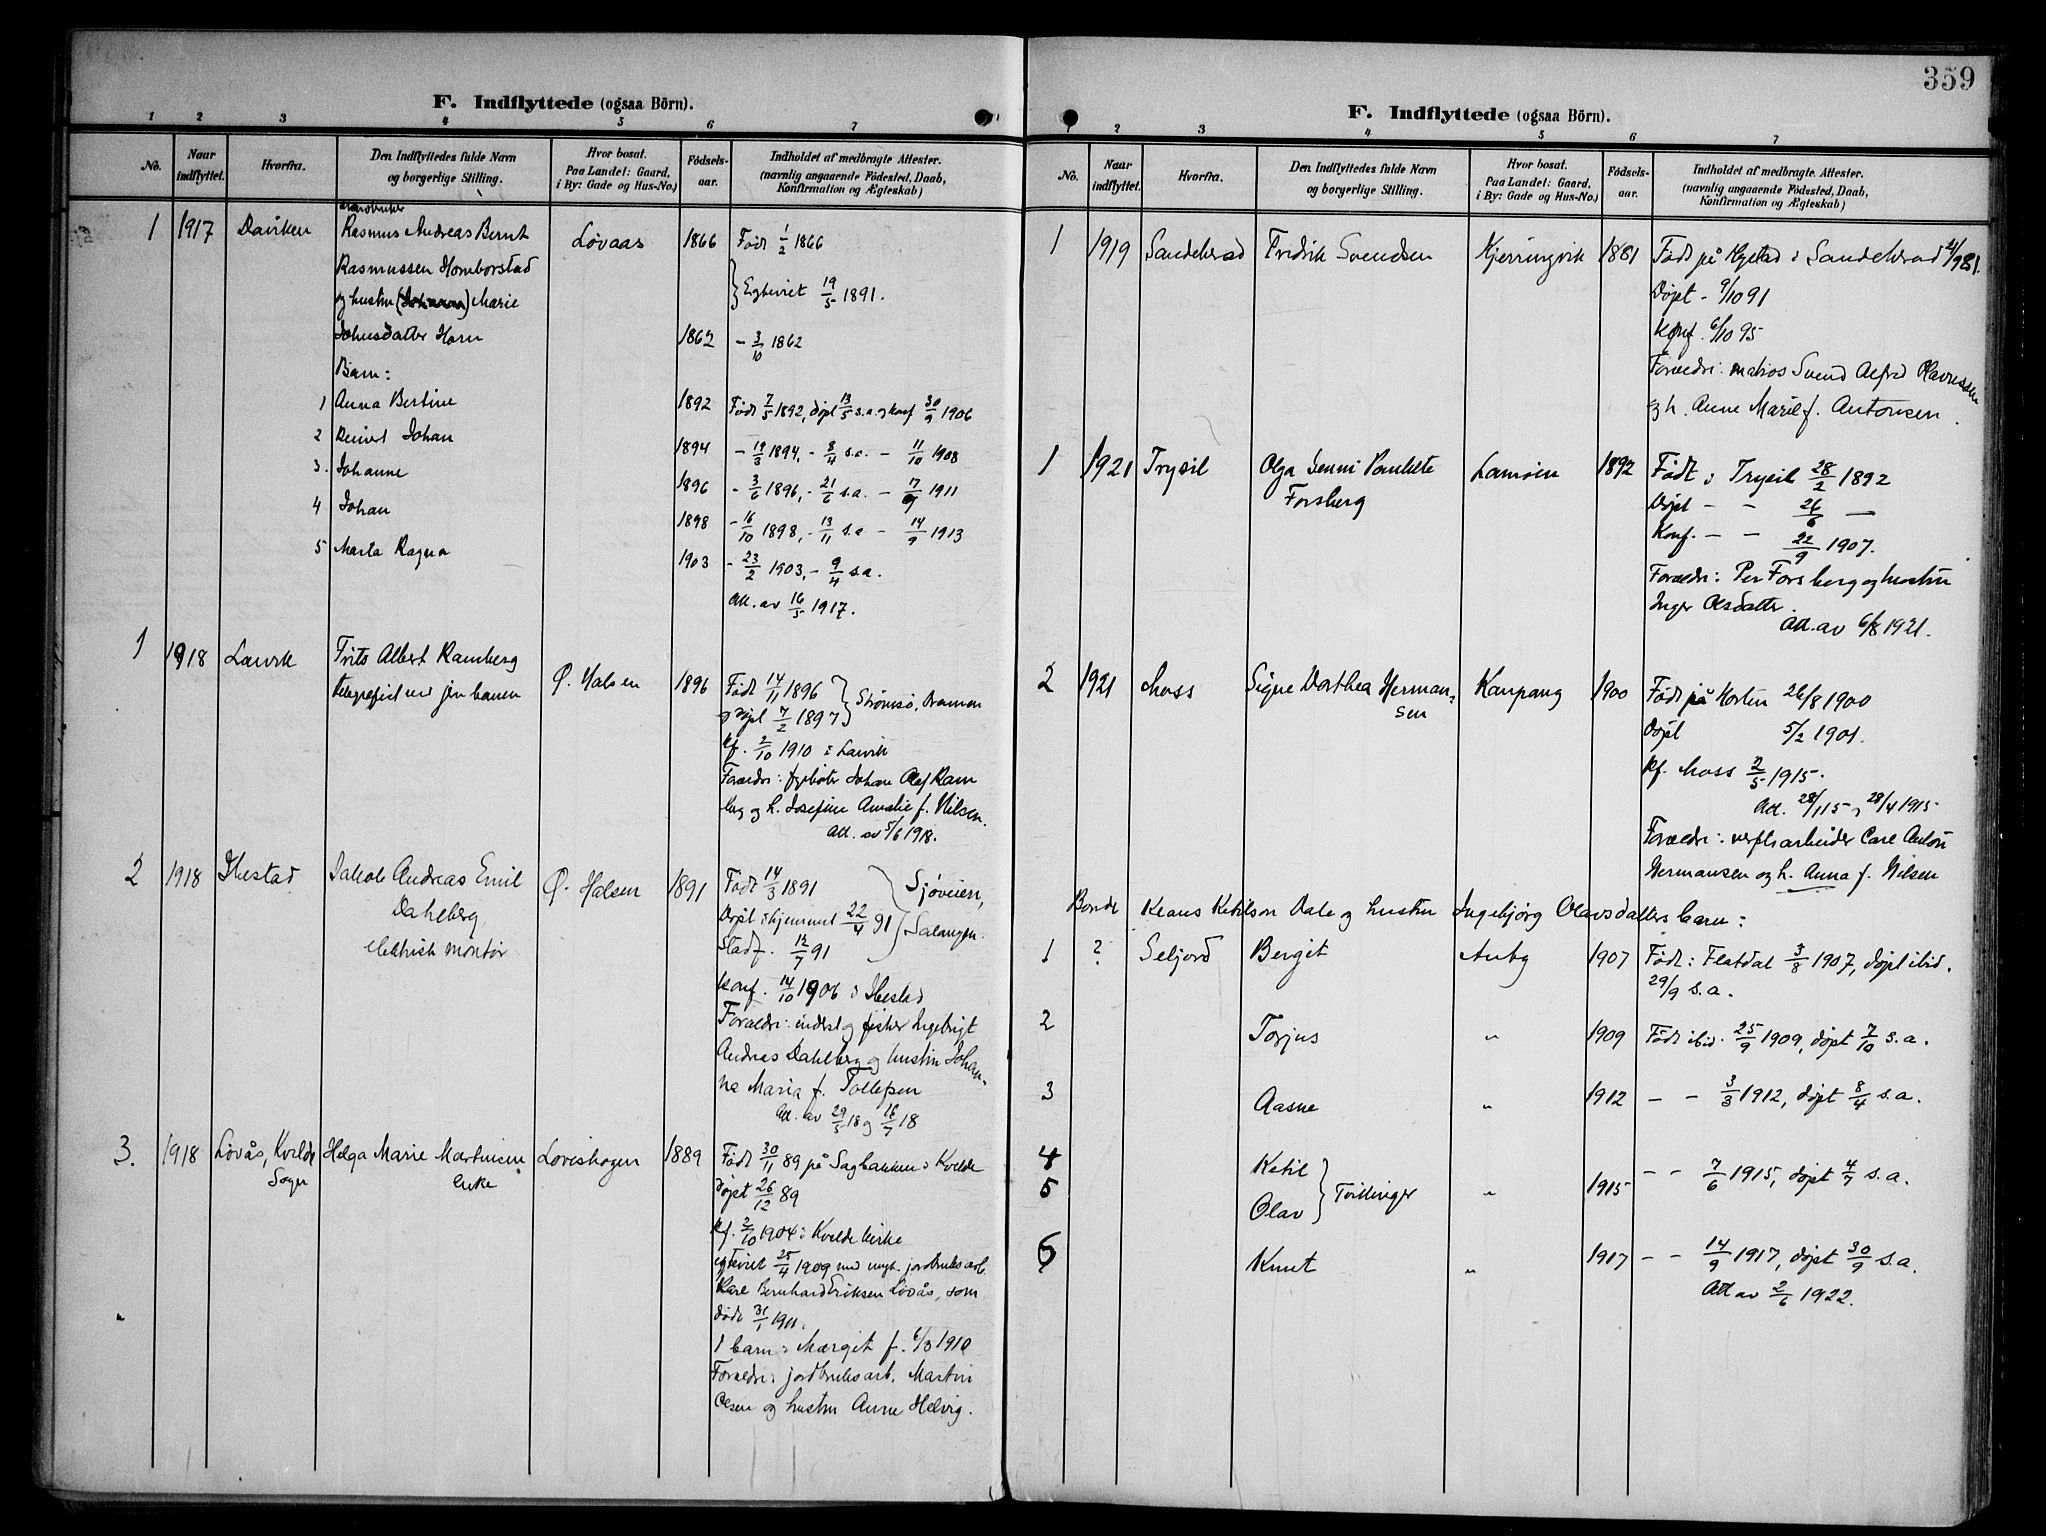 F. Indflyttede (ogsaa Börn).
1 2 3 4 5 6 7
No. Naar indflyttet. Hvorfra. Den Indflyttedes fulde Navn og borgerlige Stilling. Hvor bosat. Paa Landet: Gaard, i By: Gade og Hus-No.) Fødsels-aar. Indholdet af medbragte Attester. (navnlig angaaende Fødested, Daab, Konfirmation og Ægteskab)
1 1917 Daviken Rasmus Andreas Bernt Løvaas 1866 Født 1/2 1866
Rasmussen Hornborstad
og hustru Marie } Egteviet 19/5 1891.
Johnsdatter Horn 1862 - 3/10 1862
Barn:
1 Anna Bertine 1892 Født 7/5 1892, døpt 13/5 s.a. og konf 30/9 1906
2 Reinert Johan 1894 - 19/3 1894, - 8/4 s.a. - 11/10 1908
3. Johanne 1896 - 3/6 1896, - 21/6 s.a. - 17/9 1911
4 Johan 1898 - 16/10 1898, - 13/11 s.a - 14/9 1913
5 Marta Ragna 1903 - 23/2 1903, - 9/4 s.a.
Att. av 16/5 1917.
1 1918 Larvik Frits Albert Ramberg Ø. Halsen 1896 Født 14/11 1896 } Strømsø, Drammen
telegrafist ved jernbanen og døpt 7/2 1897
kf. 2/10 1910 i Larvik
Forældre: fyrbøter Johan Olaf Ram
berg og h. Josefine Amalie f. Nilsen.
Att. av 5/6 1918.
2 1918 Ibestad Jakob Andreas Emil Ø. Halsen 1891 Født 14/3 1891 } Sjøveien,
Dahlberg, Døpt i hjemmet 22/4 91 Salangen.
elektrisk montør Stadf. 12/7 91
Konf. 14/10 1906 i Ibestad
Forældre: inderst og fisker Ingebrigt
Andreas Dahlberg og hustru Johan-
na Maria f. Tollefsen
Att. av 29/5 18 og 16/7 18
3. 1918 Løvås, Kvelde Helga Marie Martinsen Løveskogen 1889 Født 30/11 89 på Sagbakken i Kvelde
Sogn enke døpt 26/12 89
kf. 2/10 1904 i Kvelde kirke
egteviet 25/4 1909 med ungk. jordbruksarb.
Karl Bernhard Eriksen Løvås, som
døde 31/1 1911.
1 barn: Margit f. 6/3 1910
Forældre: jordbruksarb. Martin
Olsen og hustru Anne Helvig.
359
F. Indflyttede (ogsaa Börn).
1 2 3 4 5 6 7
No. Naar indflyttet. Hvorfra. Den Indflyttedes fulde Navn og borgerlige Stilling. Hvor bosat. Paa Landet: Gaard, i By: Gade og Hus-No.) Fødsels-aar. Indholdet af medbragte Attester. (navnlig angaaende Fødested, Daab, Konfirmation og Ægteskab)
1 1919 Sandeherad Fredrik Svendsen Kjerringvik 1881 Født på i Sandeherad
Døpt - 9/10 91
Konf. 6/10 95
Forældre: matros Svend Alfred Olavessen
og h. Anne Marie f. Antonsen.
1 1921 Trysil Olga Jenni Paulette Lamøen 1892 Født i Trysil 28/2 1892
Forsberg Døpt - - 26/6 —
Konf. - - 22/9 1907.
Forældre: Per Forsberg og hustru
Inger Olsdatter.
Att. av 6/8 1921.
2 1921 Moss Signe Dorthea Herman- Kaupang 1900 Født på Horten 26/8 1900
sen Døpt 5/2 1901.
Kf. Moss 2/5 1915.
Att. 28/1 15 og 28/4 1915
Forældre: verftsarbeider Carl Anton
Hermansen og h. Anna f. Nilsen
Bonde Klaus Ketilson Dale og hustru Ingebjørg Olavsdatters barn:
1 ? Seljord Bergit Auby 1907 Født i Flatdal 3/8 1907, døpt ibid.
29/9 s.a.
2 Torjus " 1909 Født ibid. 25/9 1909, døpt 7/10 s.a.
3 Aasne " 1912 - - 3/3 1912, døpt 8/4 s.a.
4 Ketil } Tvillinger " 1915 - - 7/6 1915, døpt 4/7 s.a.
5 Olav
6 Knut " 1917 - - 14/9 1917, døpt 30/9 s.a.
Att av 2/6 1922.